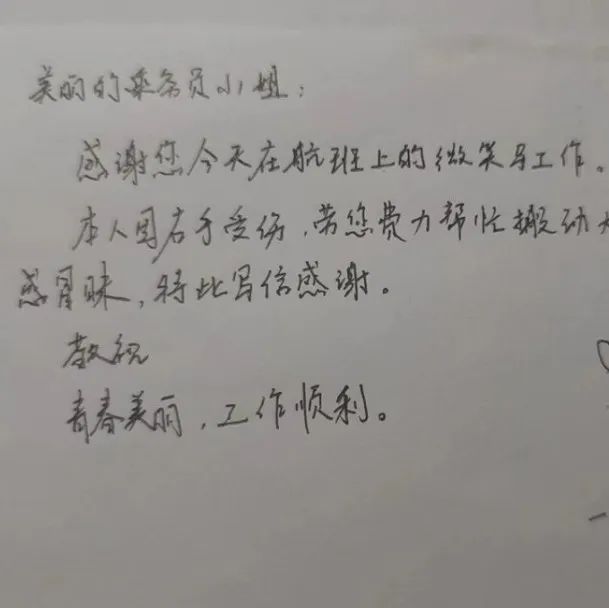 美丽的乘务员小姐：
感谢您今天在航班上的微笑与工作。
本人因右手受伤，劳您费力帮忙搬动
感冒昧，特此写信感谢。
敬祝
青春美丽，工作顺利。